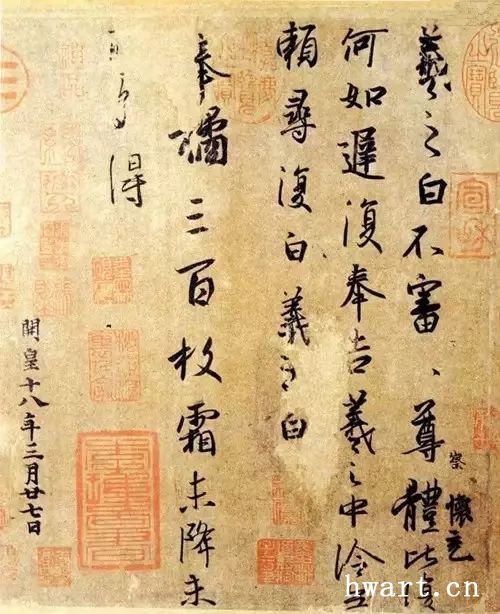 羲之白不審、尊體比復
察 懷充
何如遲復奉告羲之中冷無
賴尋復白羲之白
奉橘三百枚霜未降未
可多得
開皇十八年三月廿七日
hwart.cn